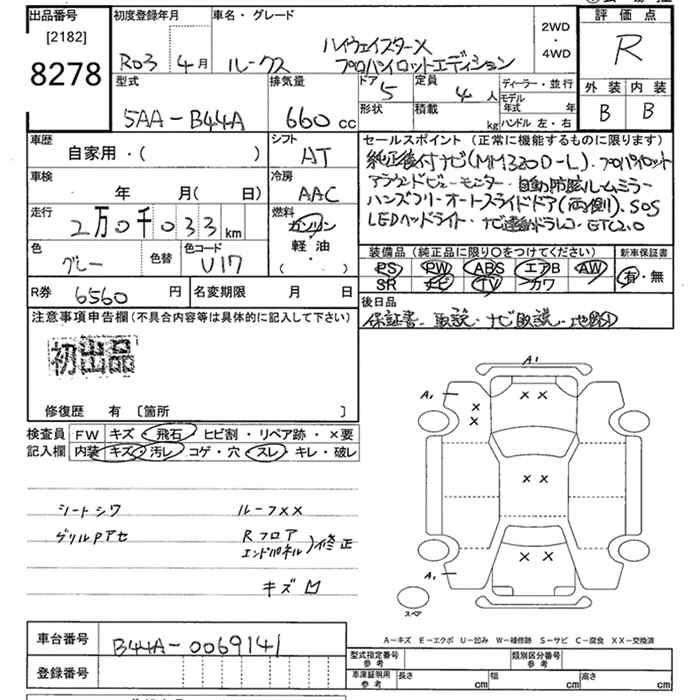 出品番号
[2182]
8278
初度登録年月
R03 4月
車名・グレード
ハイウェイスターX
ルークス プロパイロットエディション
2WD
・
4WD
評価点
R
外装 内装
B B
型式
5AA-B44A
排気量
660 cc
ドア
5
定員
4人
形状
積載
kg
ディーラー・並行
モデル年式 年
ハンドル 左・右
車歴
自家用・( )
シフト
AT
車検
年 月( 日)
冷房
AAC
走行
2万0千033km
燃料
ガソリン
軽油
( ・ )
色
グレー
色替
色コード
U17
R券 6560 円
名変期限 月 日
セールスポイント(正常に機能するものに限ります)
純正後付ナビ(MM320D-L)、プロパイロット
アラウンドビューモニター・自動防眩ルームミラー
ハンズフリーオートスライドドア(両側)、SOS
LEDヘッドライト・ナビ連動ドラレコ・ETC2.0
装備品(純正品に限り○をつけてください)
PS PW ABS エアB AW
SR ナビ TV カワ
新車保証書
有・無
後日品
保証書・取説・ナビ取説・
注意事項申告欄(不具合内容等は具体的に記入して下さい)
初出品
修復歴 有 〔箇所 〕
検査員記入欄
FW キズ・飛石・ヒビ割・リペア跡・×要
内装 キズ・汚レ・コゲ・穴・スレ・キレ・破レ
シートシワ
グリルPアセ
ルーフ××
Rフロア
エンドパネル)修正
キズ凹
A1
A1
× ×
×
×
× ×
× ×
A1
スペア
A-キズ E-エクボ U-凹み W-補修跡 S-サビ C-腐食 XX-交換済
車台番号 B44A-0069141
登録番号
型式指定番号 参考
類別区分番号 参考
車庫証明用 参考
長さ cm
幅 cm
高さ cm